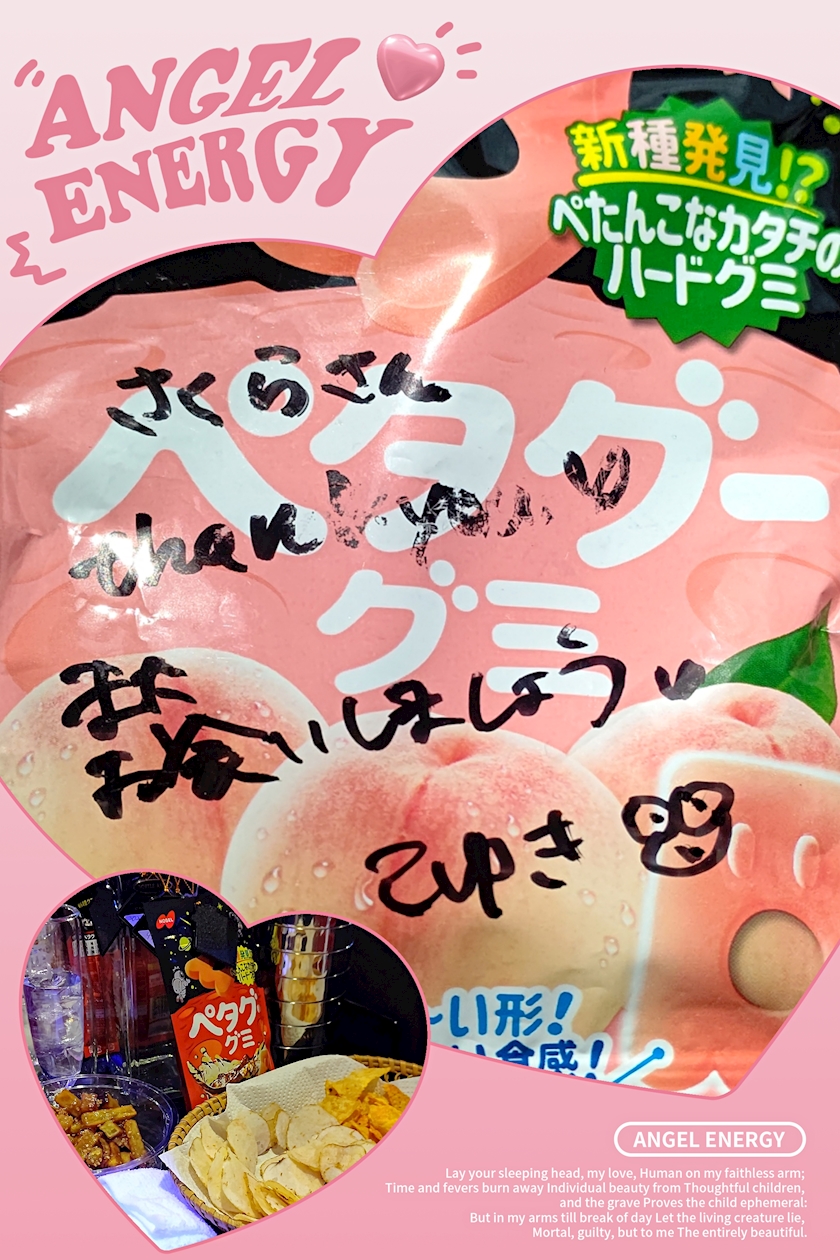 ANGEL
ENERGY
新種発見!?
ぺたんこなカタチの
ハードグミ
ペタグー
グミ
さくらさん
thank you
また
お会いしましょう
こゆき
い形!
い食感!
ペタグ
グミ
ANGEL ENERGY
Lay your sleeping head, my love, Human on my faithless arm;
Time and fevers burn away Individual beauty from Thoughtful children,
and the grave Proves the child ephemeral:
But in my arms till break of day Let the living creature lie,
Mortal, guilty, but to me The entirely beautiful.